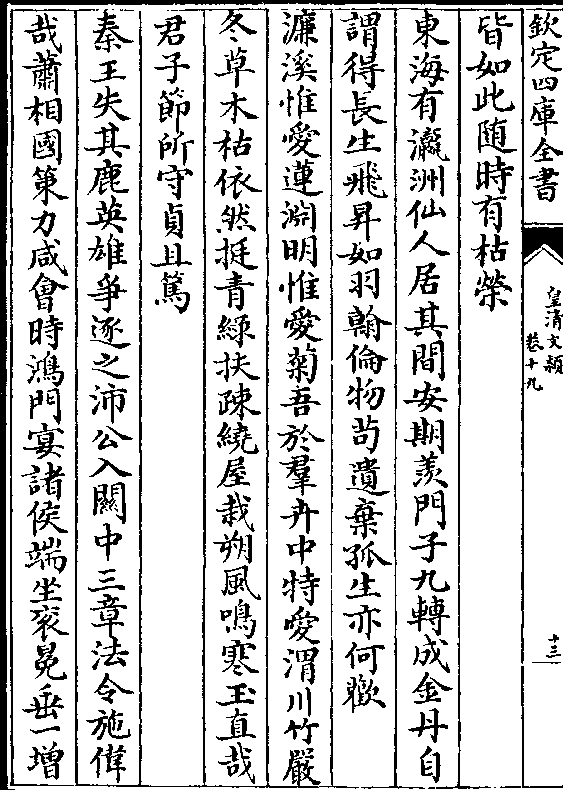 欽定四庫全書
皇清文頴
卷十九
十三
皆如此随時有枯榮
東海有瀛洲仙人居其間安期羨門子九轉成金丹自
謂得長生飛昇如羽翰倫物苟遺棄孤生亦何歡
濂溪惟愛蓮淵明惟愛菊吾於羣卉中特愛渭川竹嚴
冬草木枯依然挺青緑扶疎繞屋栽朔風鳴寒玉直哉
君子節所守貞且篤
秦王失其鹿英雄爭逐之沛公入關中三章法令施偉
哉蕭相國策力咸會時鴻門宴諸侯端坐衮冕垂一增